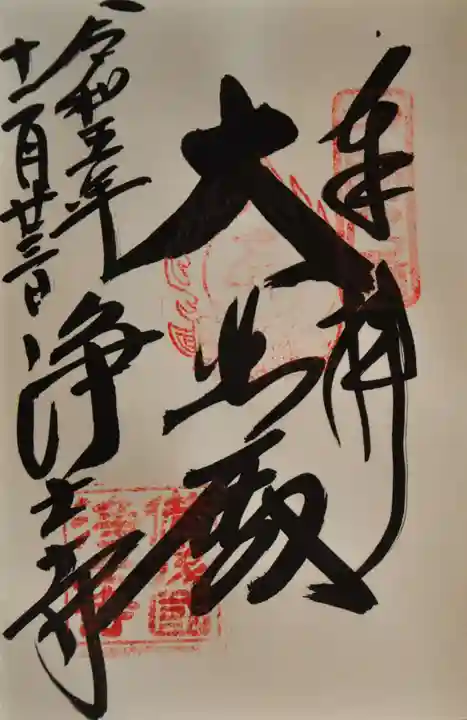 奉拝
大悲殿
令和五年
十一月廿三日
浄土寺